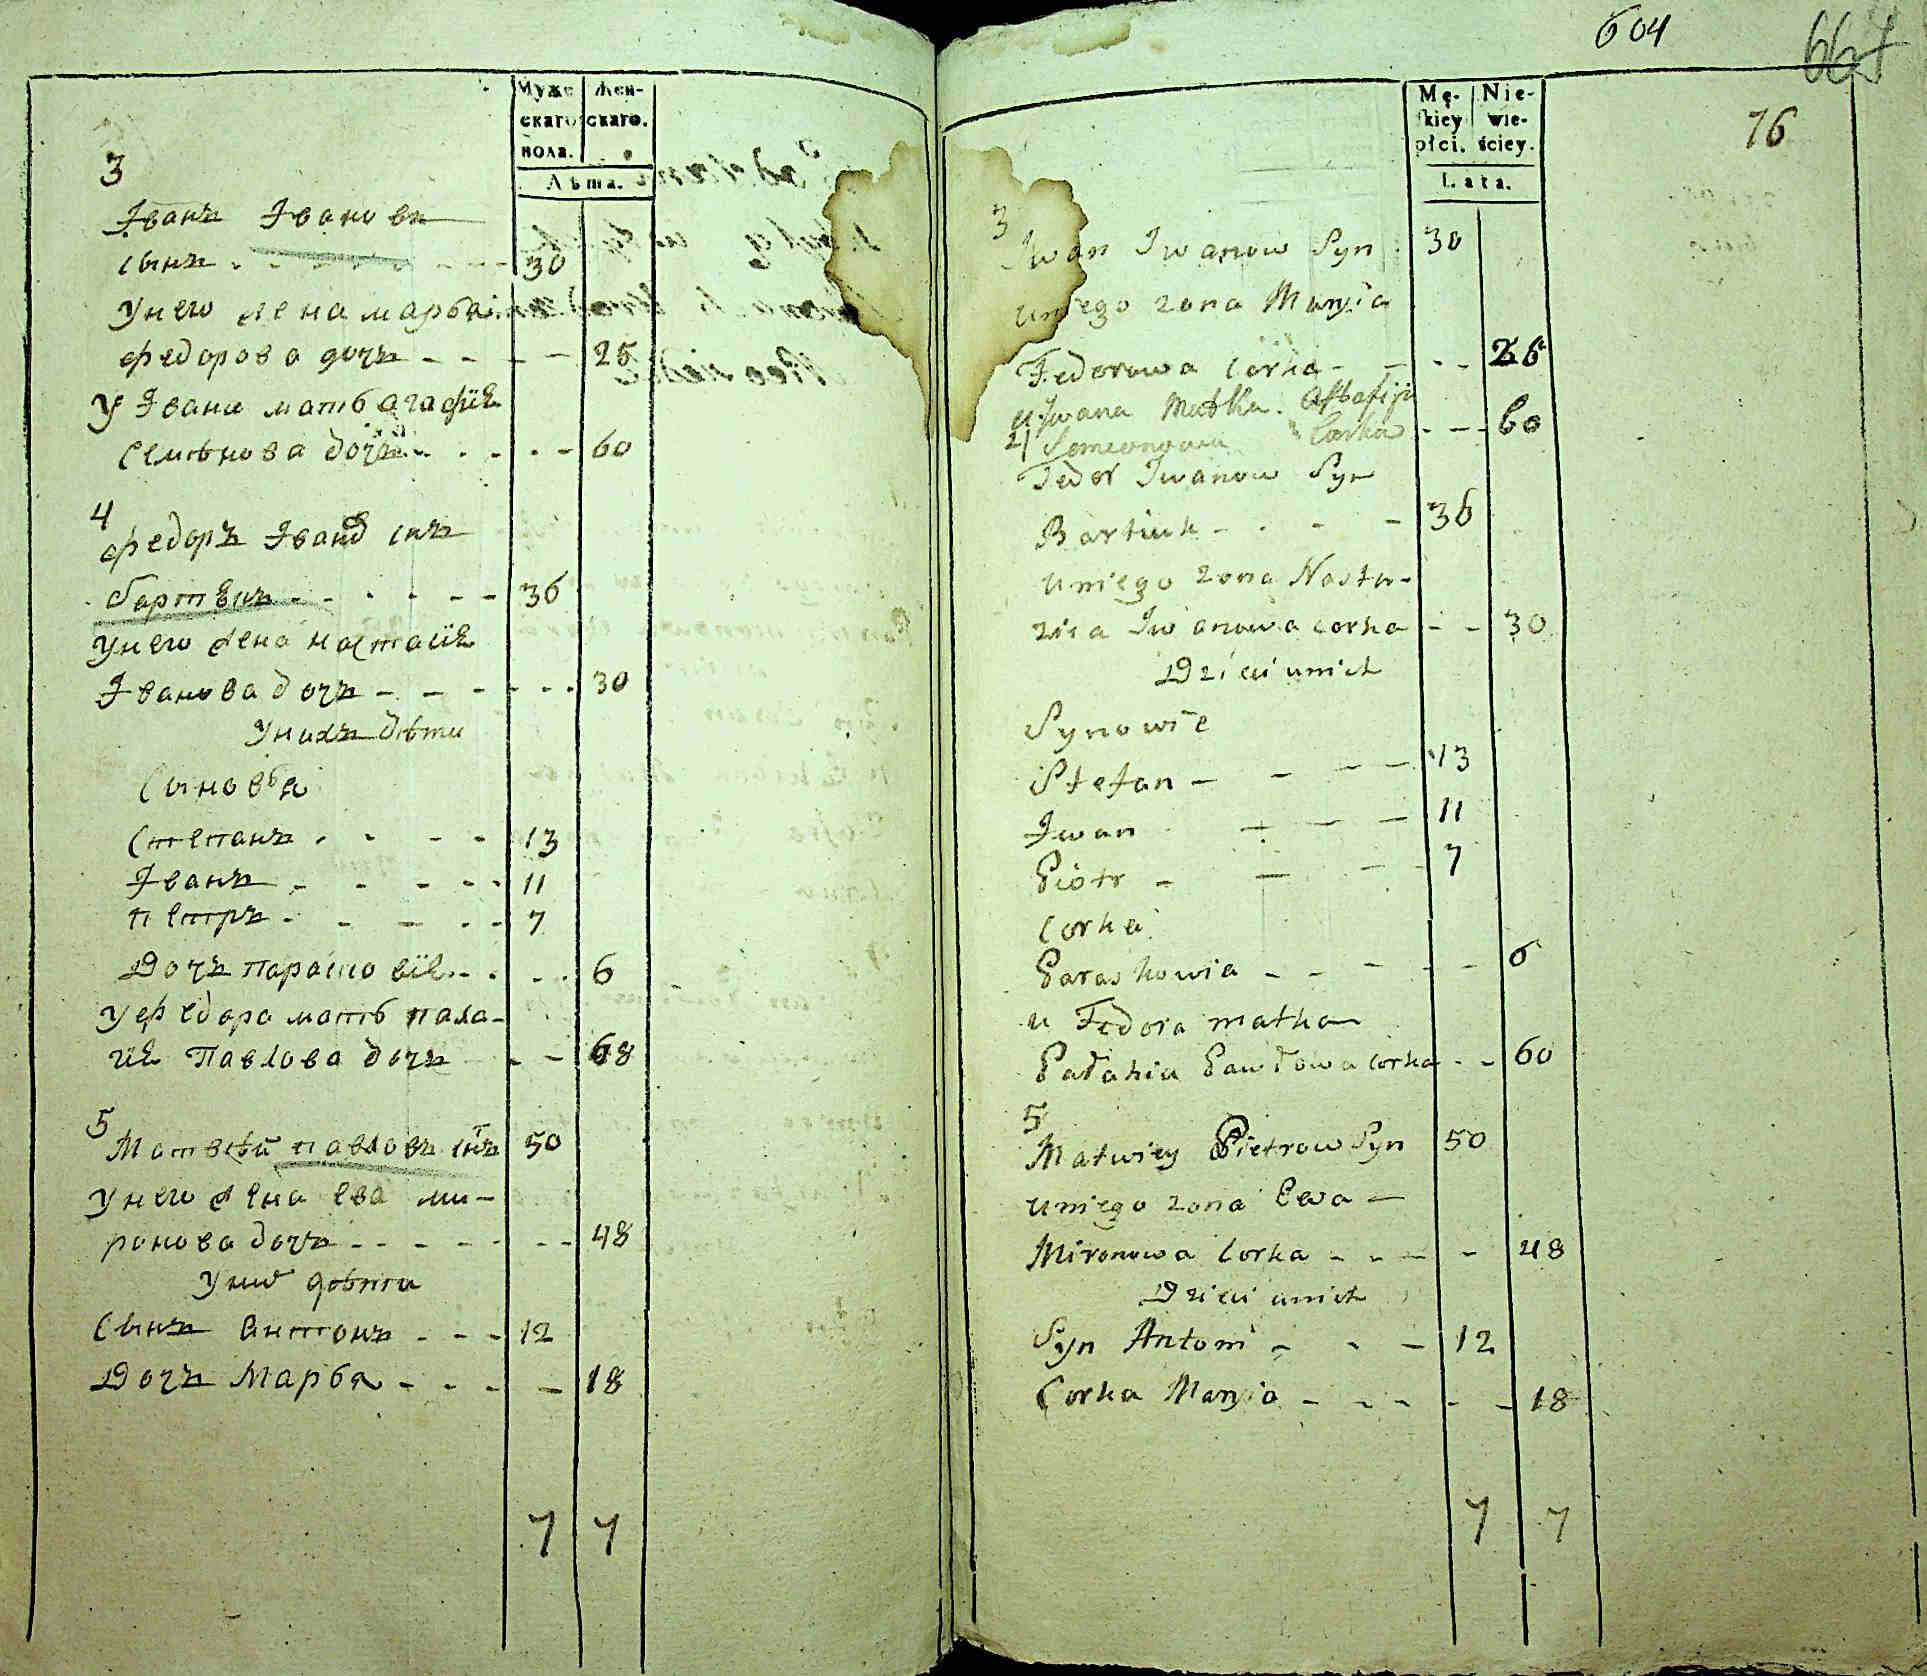 Муже
скаго
пола.
Жен-
скаго.
Лѣта.
3
Іванъ Івановъ
сынъ 30
унего жена марья
федорова дочь 25
у Івана мать агафия
семѣнова дочь 60
4
федоръ Іванов снъ
бартѣкъ 36
унего жена настасия
Іванова дочь 30
унихъ дѣти
Сыновья
Степанъ 13
Іванъ 11
петръ 7
Дочь парасковия 6
у федора мать пала-
гия Павлова дочь 68
5
Матвѣй павловъ снъ 50
унего жена ева ми-
ронова дочь 48
уних дѣти
Сынъ антонъ 12
Дочь Марья 18
7 7
604
664
76
Mę-
skiey
płci.
Nie-
wie-
ściey.
Lata.
3
Iwan Iwanow Syn 30
uniego zona Maryia
Fedorowa corka 26
u Iwana Matka
Semeonowa Corka 60
Fedor Iwanow Syn
Bartiuk 36
uniego zona Nasta-
zia Iwanowa corka 30
Dzieci unich
Synowie
Stefan 13
Iwan 11
Piotr 7
Corka
Paraskowia 6
u Fedora matka
Pałahia Pawłowa corka 60
5
Matwiey Pietrow Syn 50
uniego zona Ewa
Mironowa Corka 48
Dzieci unich
Syn Antoni 12
Corka Maryia 18
7 7